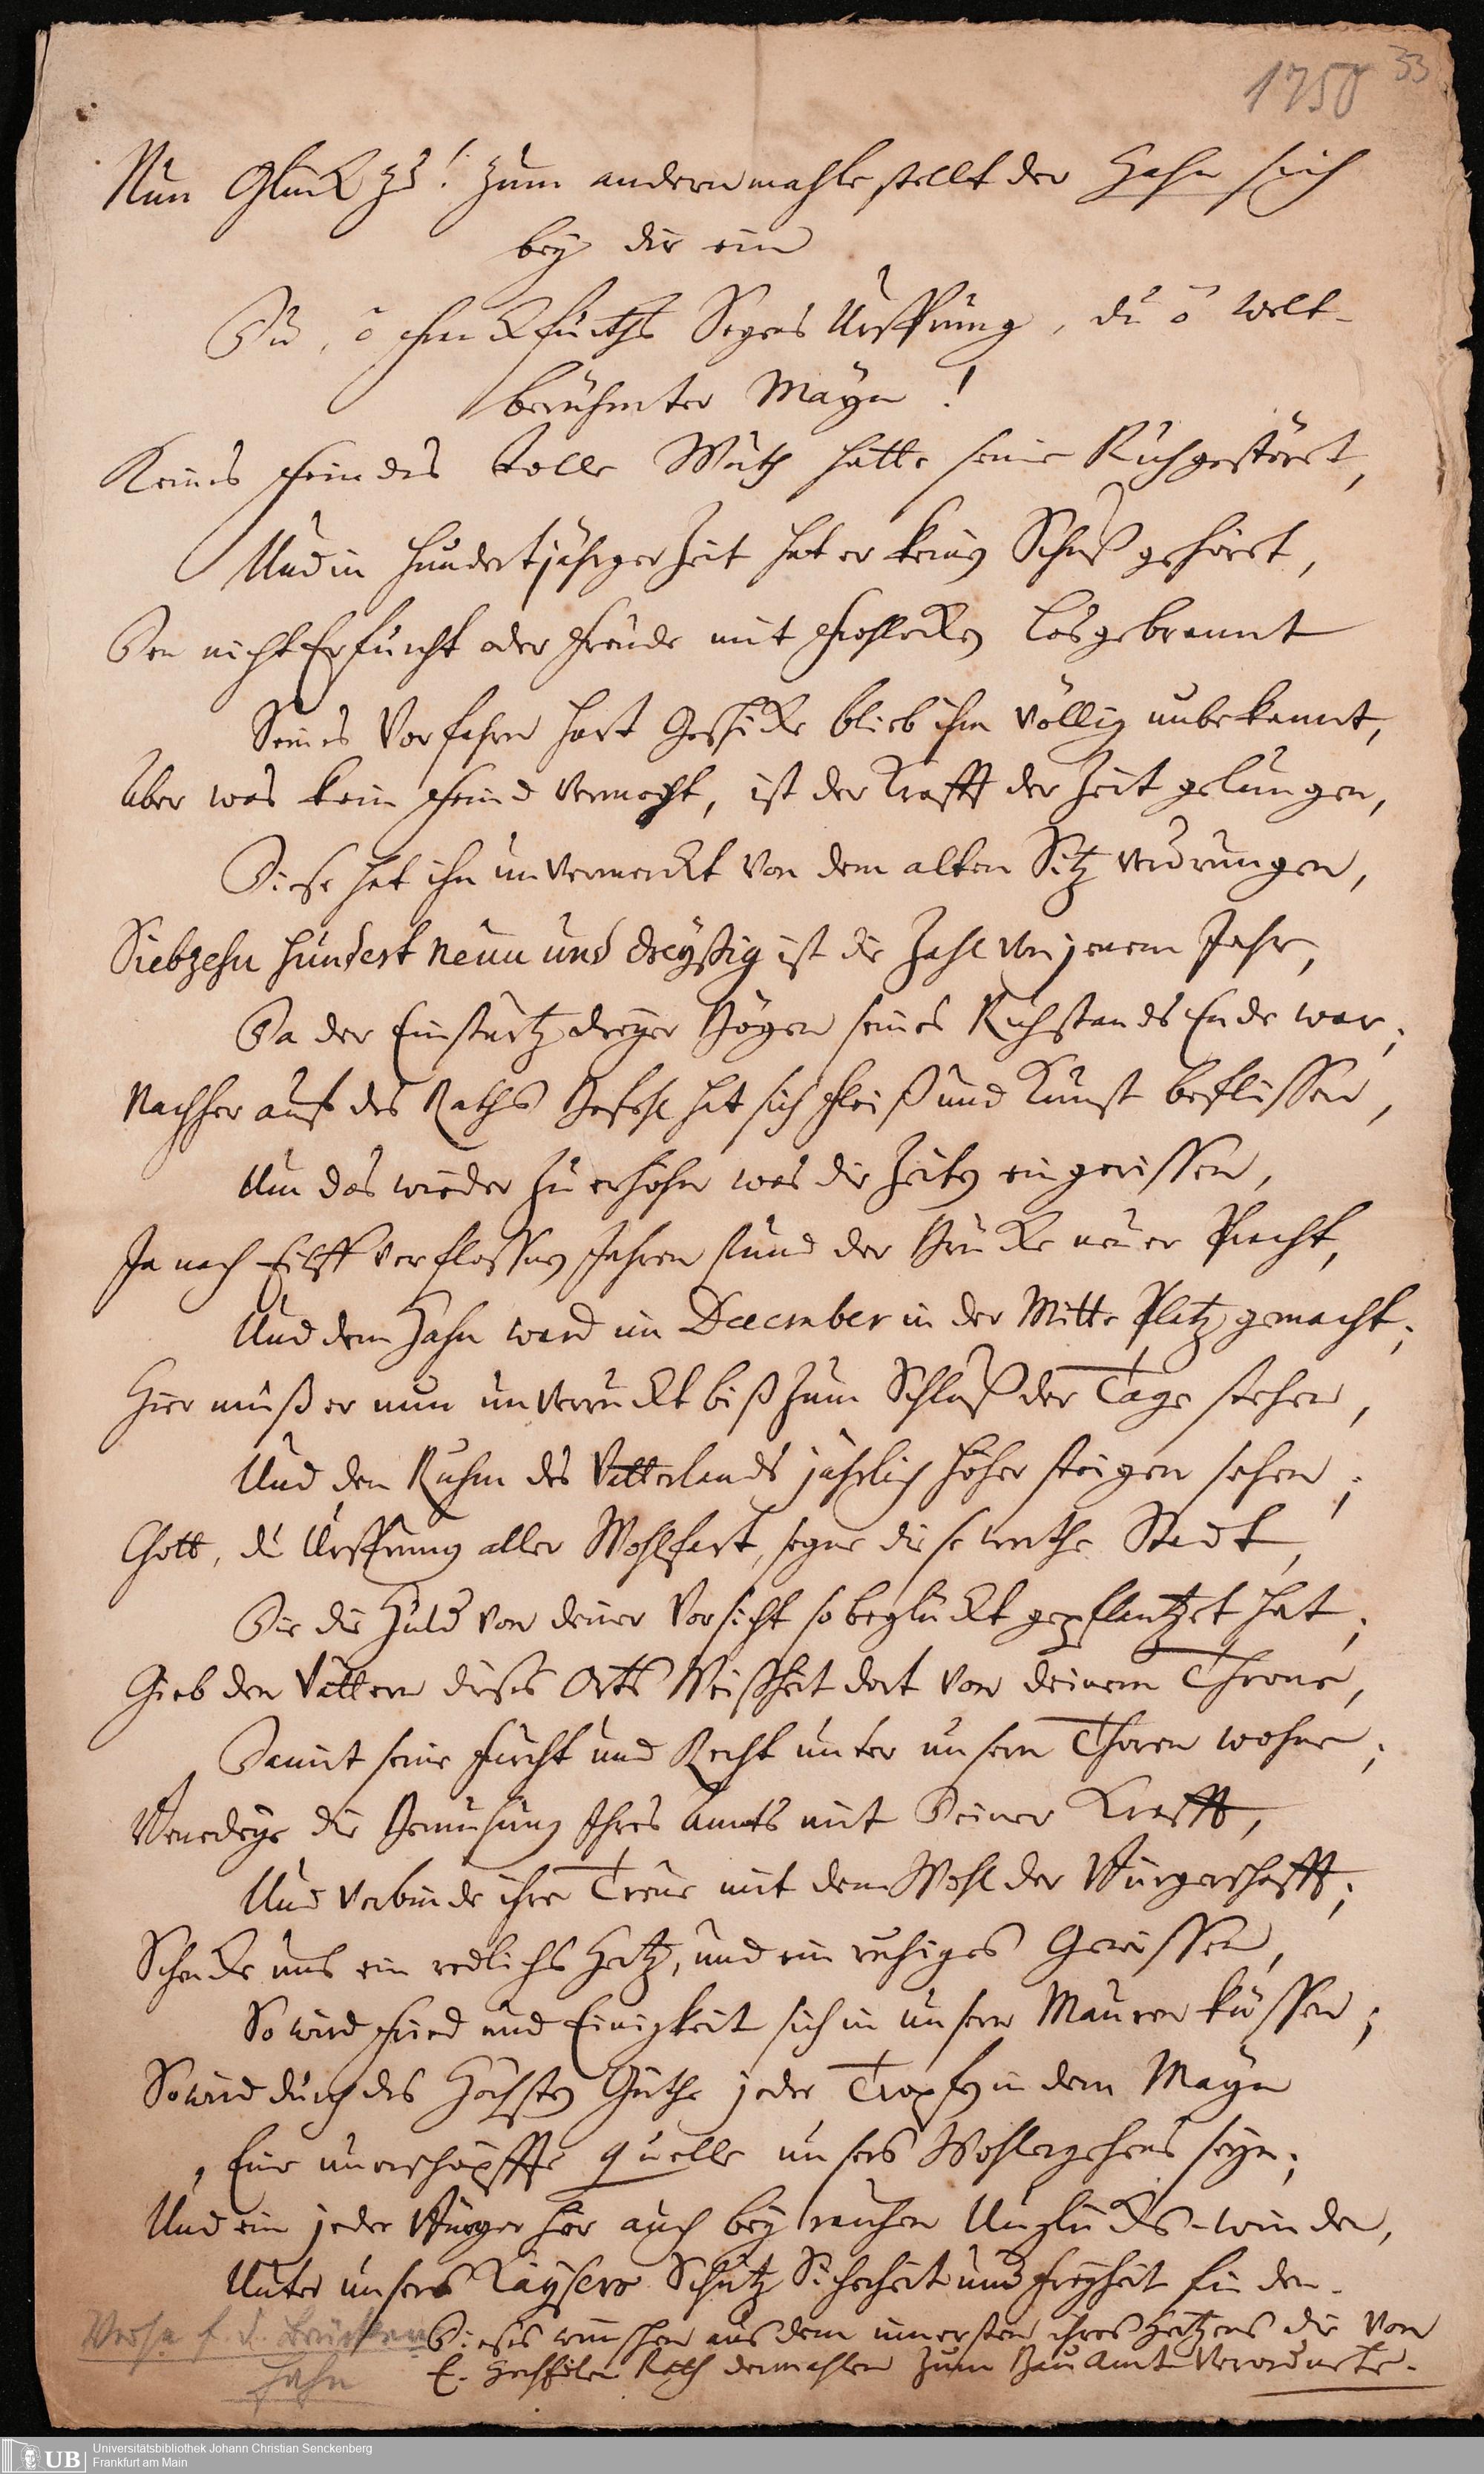 1750 33
Nun Glück zu! zum andernmahle stellt der Hahn sich
bey dir ein
Du, ô Franckfurths Segens Ursprung, du ô welt-
berühmter Mayn!
Keines Feindes tolle Wuth hatte seine Ruh gestört,
Und in hundertjährger Zeit hat er keinen Schuß gehört,
Den nicht Ehrfurcht oder Freude mit Frohlocken losgebrannt
Seines Vorfahren hart Geschicke blieb ihm völlig unbekannt,
Aber was kein Feind vermocht, ist der Krafft der Zeit gelungen,
Diese hat ihn unvermerckt von dem alten Sitz verdrungen,
Siebzehn hundert neun und dreyßig ist die Zahl von jenem Jahr,
Da der Einsturtz dreyer Bögen seines Ruhstands Ende war;
Nachher auf des Raths Befehl hat sich Fleiß und Kunst beflissen,
Um das wieder zu erhöhn was die Zeiten eingerissen,
Ja nach Eilff verflossnen Jahren stund der Brücke neuer Pracht,
Und dem Hahn ward im December in der Mitte Platz gemacht;
Hier muß er nun unverruckt biß zum Schluß der Tage stehen,
Und den Ruhm des Vatterlands jährlich höher steigen sehen;
Gott, du Ursprung aller Wohlfart, segne diese werthe Stadt,
Die die Huld von deiner Vorsicht so beglückt gepflantzet hat;
Gieb den Vättern dieses Orts Weißheit dort von deinem Throne,
Damit seine Furcht und Recht unter unsern Thoren wohne;
Benedeye die Bemühung Ihres Amts mit Deiner Krafft,
Und verbinde ihre Treue mit dem Wohl der Bürgerschafft;
Schencke uns ein redlichs Hertz, und ein ruhiges Gewissen,
So wird Fried und Einigkeit sich in unsern Mauren küssen;
So wird durch des Höchsten Güthe jeder Tropfen in dem Mayn
Eine unerschöpffte Quelle unsers Wohlergehens seyn;
Und ein jeder Bürger hier auch bey rauhen Unglücks-winden,
Unter unsers Kaysers Schutz Sicherheit und Freyheit finden.
Dieses wünschen aus dem innersten ihres Hertzens die von
E. Hochedlen Rath dermahlen zum Bau Amt Verordnete.
Verse f. d. Brücken
Hahn
UB
Universitätsbibliothek Johann Christian Senckenberg
Frankfurt am Main